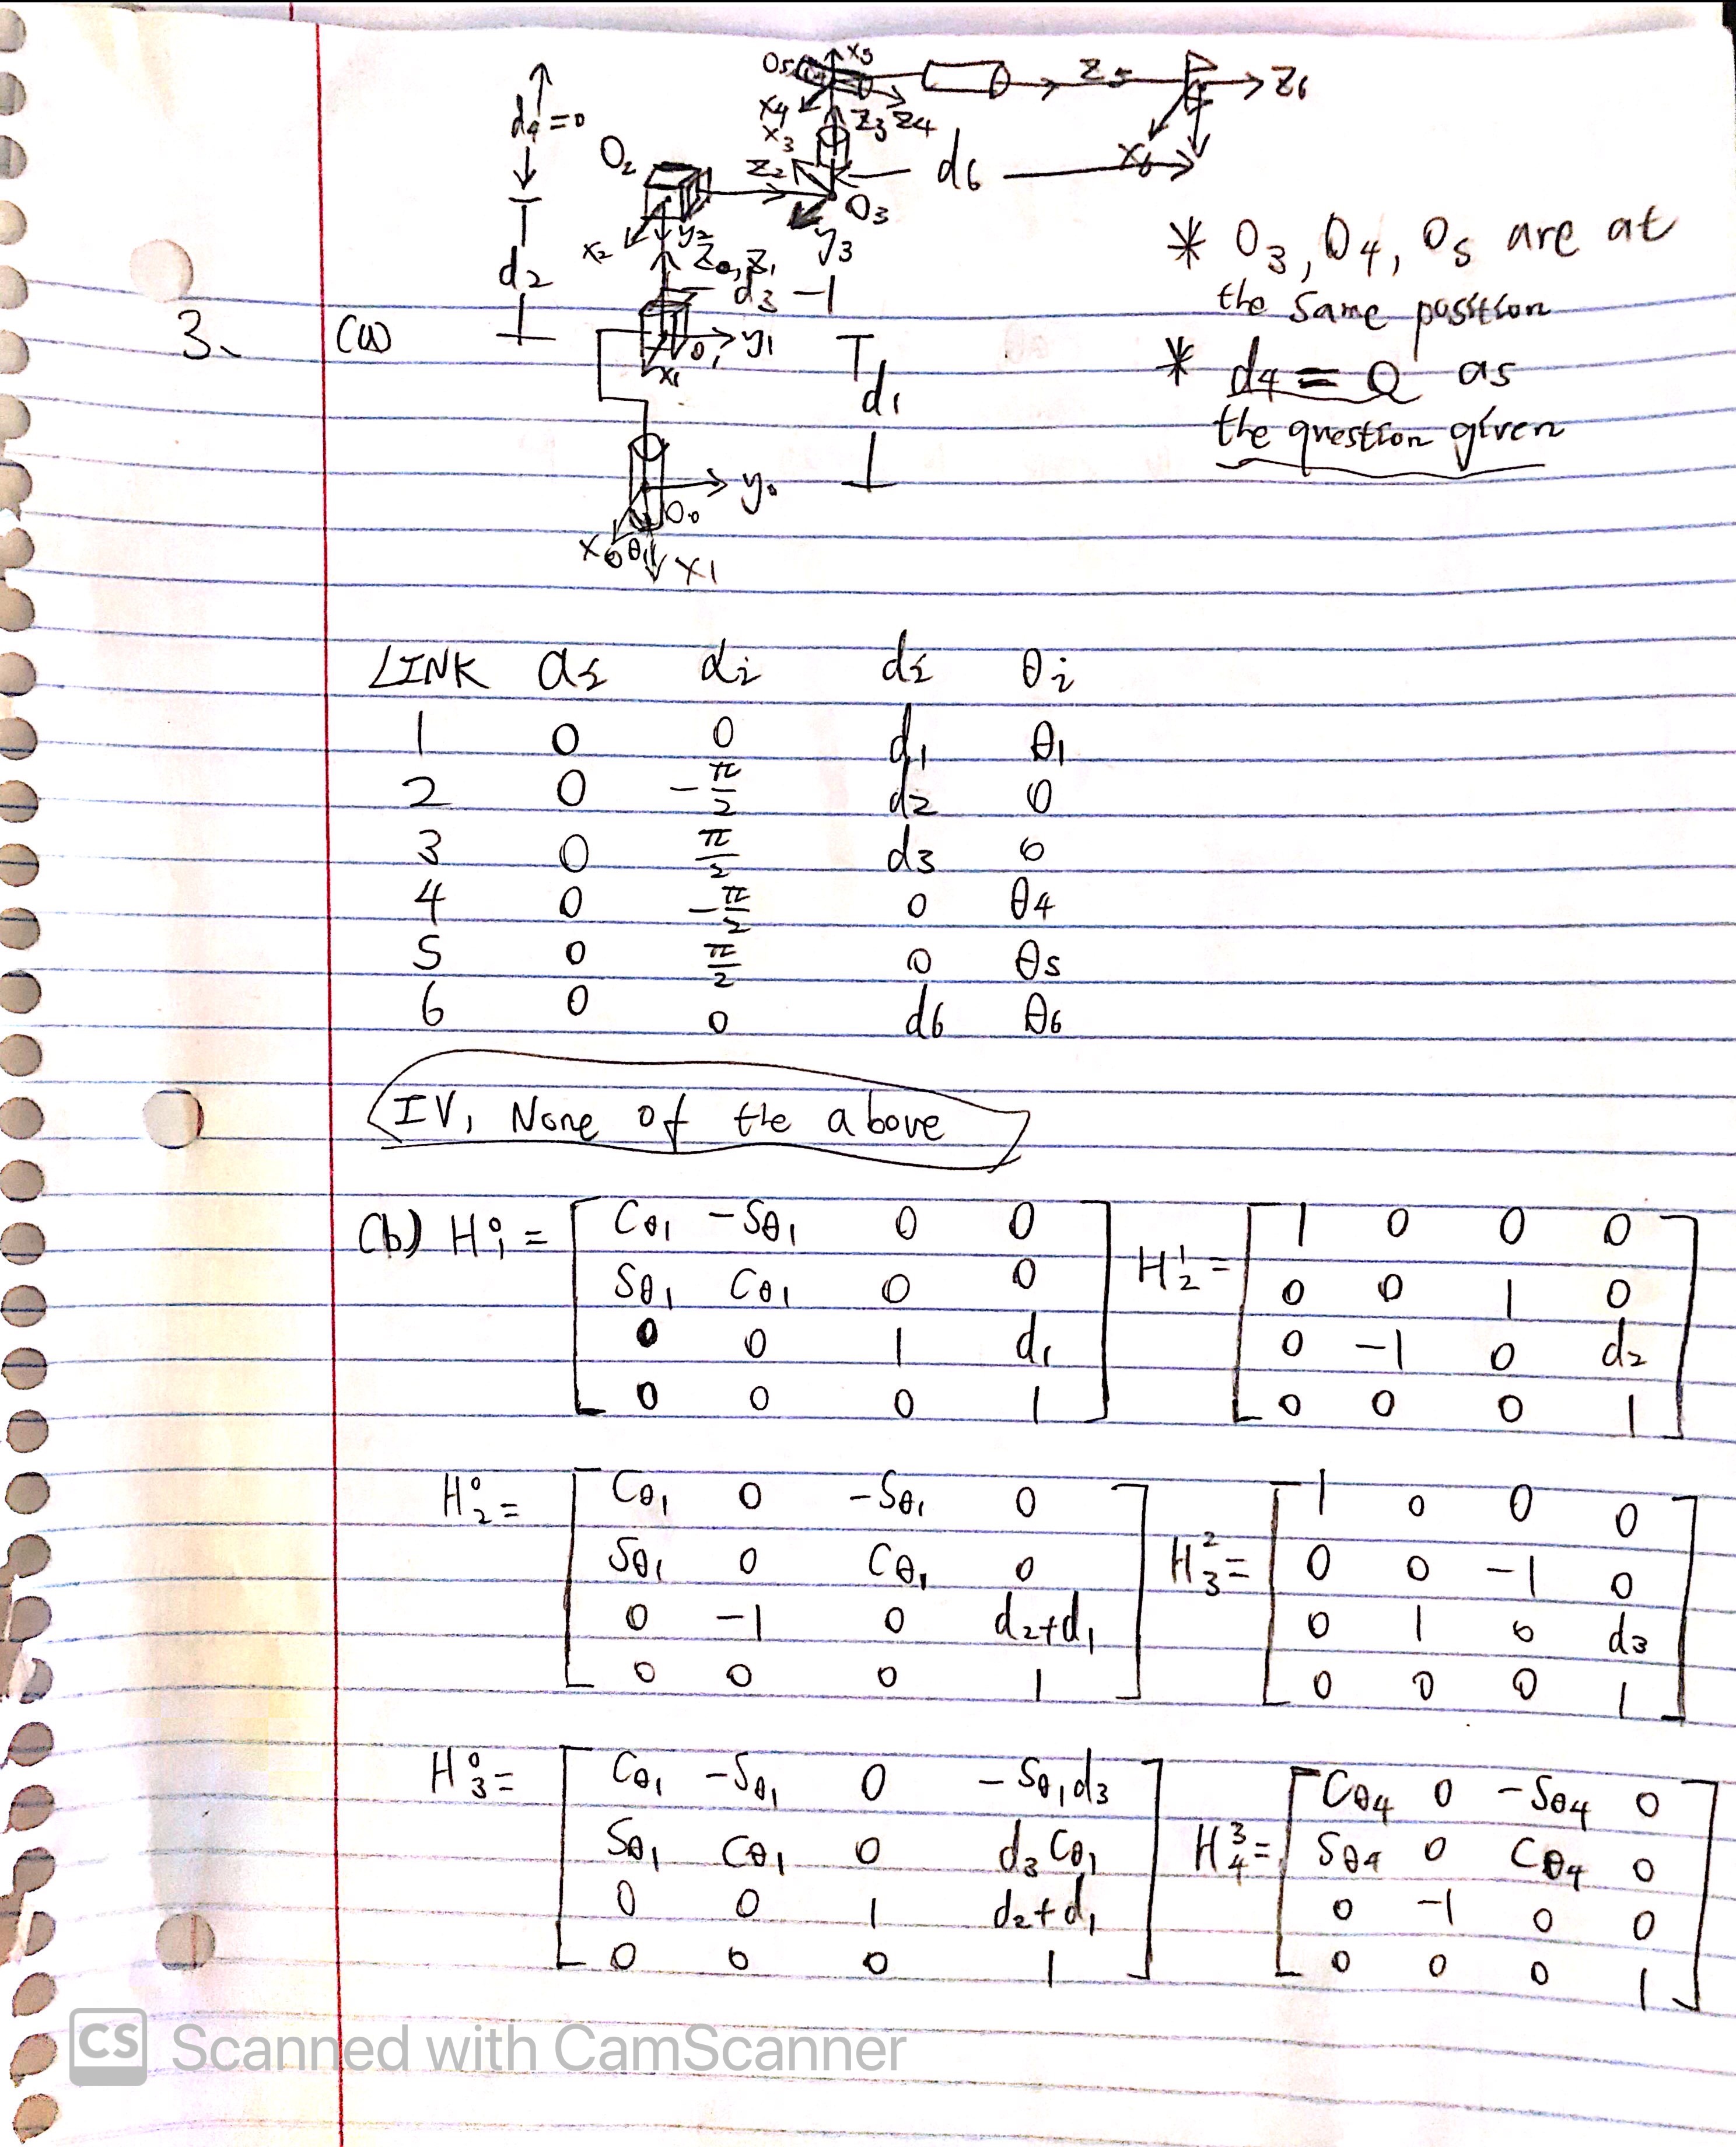 3. (a)
O5 x5 z5 z6
x4 z3 z4
d4=0 x3
O2 z2 d6 x6
O3
x2 y2 y3
z0, z1
d2 d3
* O3, O4, O5 are at
the same position
y1
O1
x1 d1
* d4 = 0 as
the question given
y0
O0
x0 θ1 x1
LINK ai αi di θi
1 0 0 d1 θ1
2 0 -π/2 d2 0
3 0 π/2 d3 0
4 0 -π/2 0 θ4
5 0 π/2 0 θ5
6 0 0 d6 θ6
IV, None of the above
(b) H⁰₁ = [ Cθ1 -Sθ1 0 0
Sθ1 Cθ1 0 0
0 0 1 d1
0 0 0 1 ]
H¹₂ = [ 1 0 0 0
0 0 1 0
0 -1 0 d2
0 0 0 1 ]
H⁰₂ = [ Cθ1 0 -Sθ1 0
Sθ1 0 Cθ1 0
0 -1 0 d2+d1
0 0 0 1 ]
H²₃ = [ 1 0 0 0
0 0 -1 0
0 1 0 d3
0 0 0 1 ]
H⁰₃ = [ Cθ1 -Sθ1 0 -Sθ1d3
Sθ1 Cθ1 0 d3Cθ1
0 0 1 d2+d1
0 0 0 1 ]
H³₄ = [ Cθ4 0 -Sθ4 0
Sθ4 0 Cθ4 0
0 -1 0 0
0 0 0 1 ]
CS Scanned with CamScanner